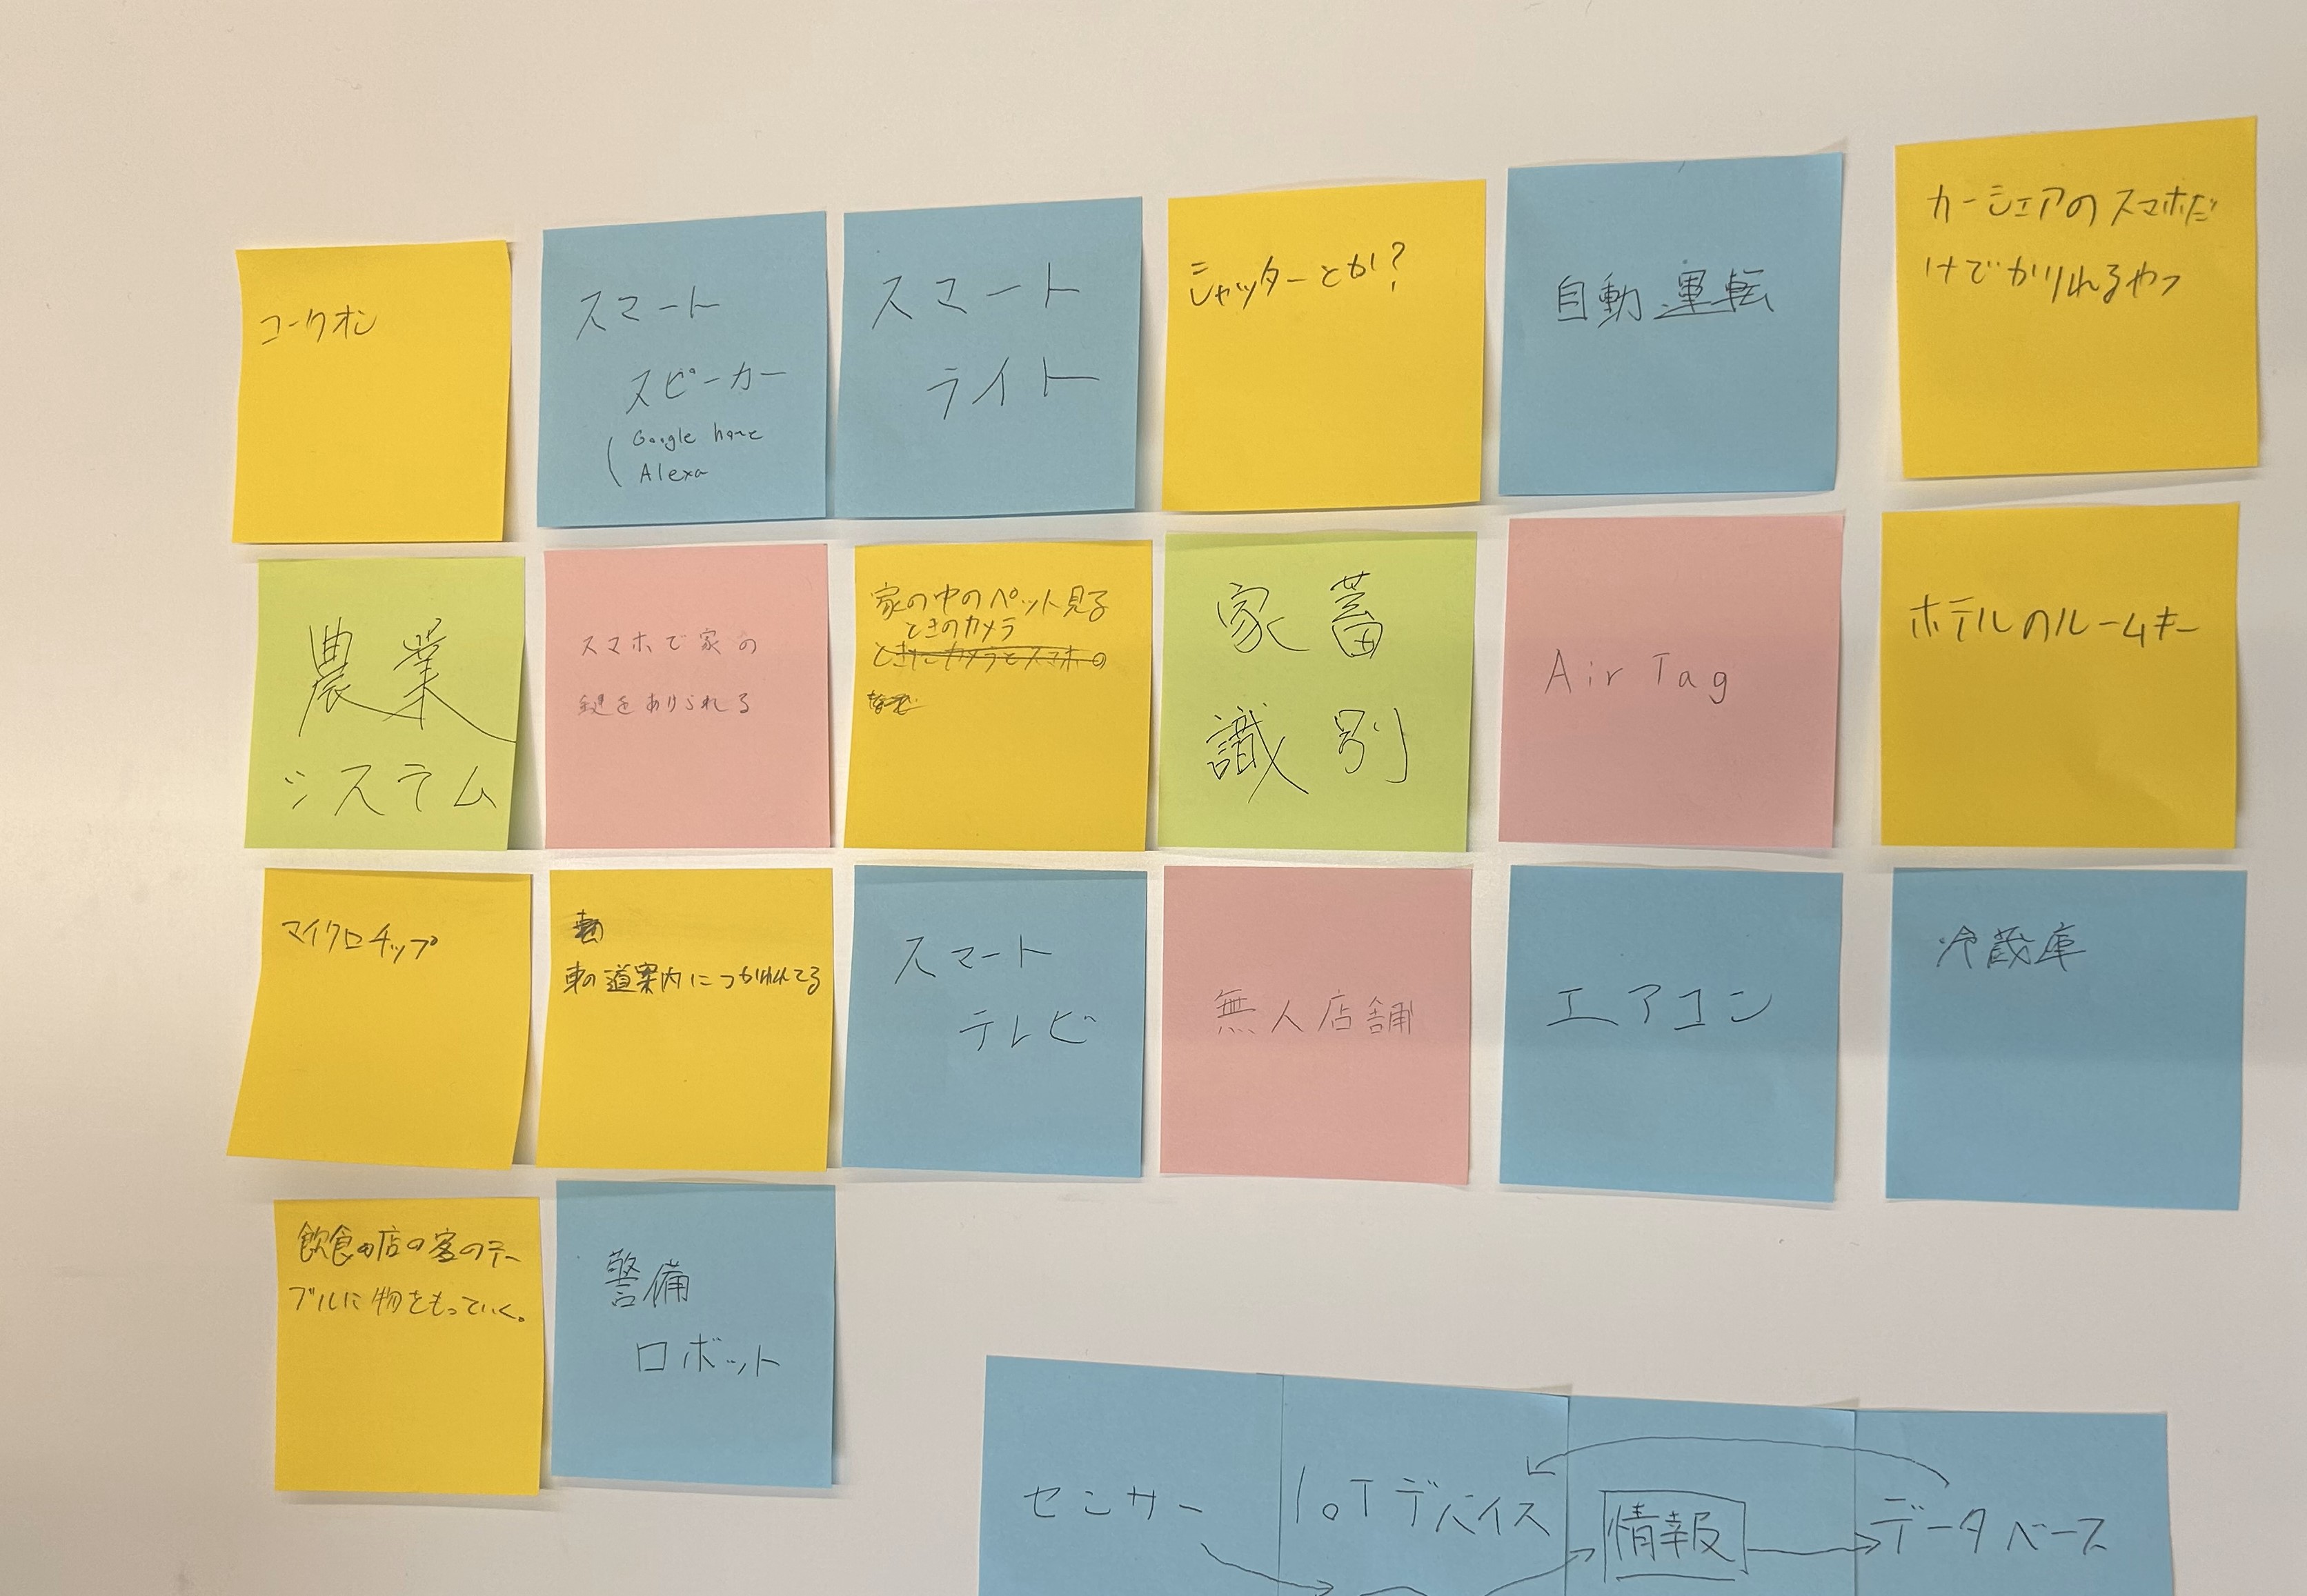 コークオン
スマート
スピーカー
Google home
Alexa
スマート
ライト
シャッターとか?
自動運転
カーシェアのスマホだ
けでかりれるやつ
農業
システム
スマホで家の
鍵をあけられる
家の中のペット見る
ときのカメラ
ときにカメラとスマホの
家畜
識別
Air Tag
ホテルのルームキー
マイクロチップ
車の道案内につかわれてる
スマート
テレビ
無人店舗
エアコン
冷蔵庫
飲食の店の客のテー
ブルに物をもっていく。
警備
ロボット
センサー
IoTデバイス
情報
データベース